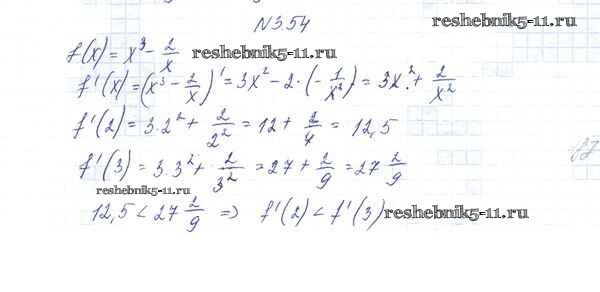 N 3.54
reshebnik5-11.ru
f(x) = x³ - 2/x
reshebnik5-11.ru
f'(x) = (x³ - 2/x)' = 3x² - 2·(-1/x²) = 3x² + 2/x²
f'(2) = 3·2² + 2/2² = 12 + 2/4 = 12,5
f'(3) = 3·3² + 2/3² = 27 + 2/9 = 27 2/9
reshebnik5-11.ru
12,5 < 27 2/9 ⇒ f'(2) < f'(3)
reshebnik5-11.ru